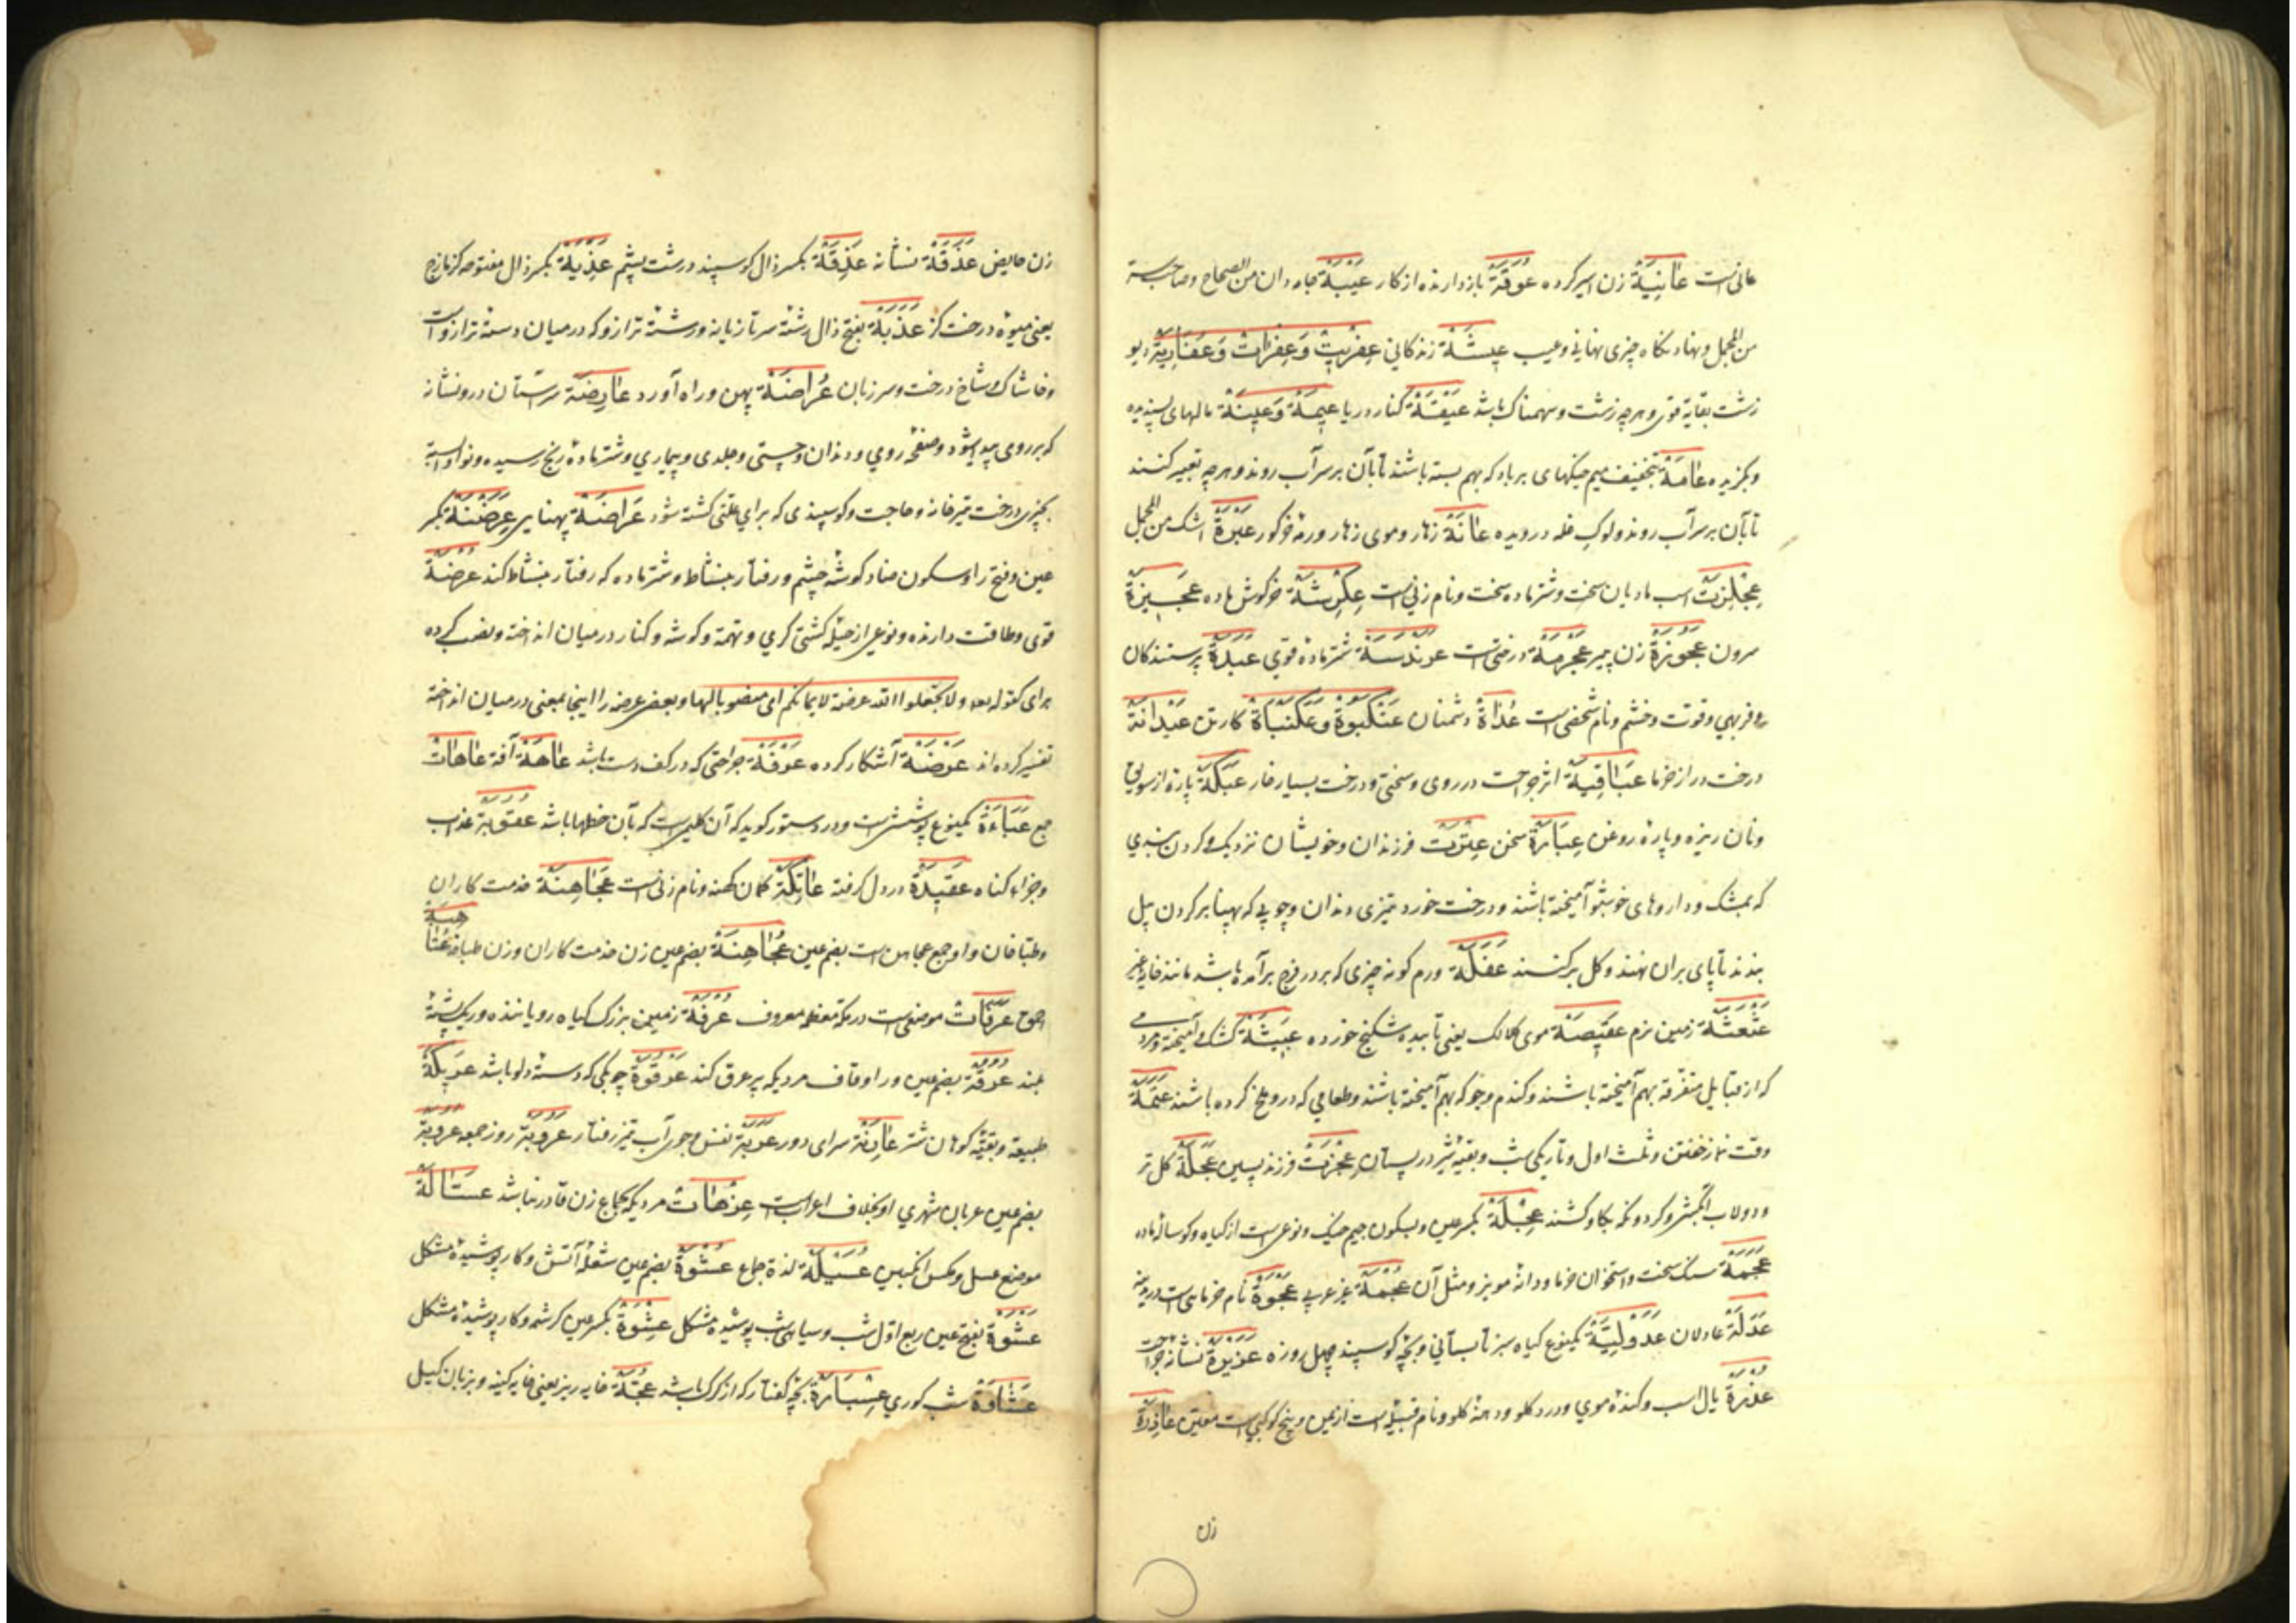 عانی است عَانِيَةٌ زن اسیر کرده عُوَقَةٌ بازدارنده از کار عَيْبَةٌ جامه دان من الصحاح وصاحب سر
من المجمل ونهاد نکاه چیزی نهانی وعیب عِيشَةٌ زندکانی عِفْرِيتٌ وَعِفْرَاتٌ وَعَفَارِيَةٌ دیو
زشت بغایة قوی وهرچه زشت وسهمناک باشد عَيْقَةٌ کنار دریا عِيمَةٌ وَعِينَةٌ مالهای پسندیده
وبکزیده عَامَةٌ بتخفیف میم خیکهای پر باد که بهم بسته باشند تا بآن بر سر آب روند وهرچه تعبیر کنند
تا بآن بر سر آب روند ولوک غله درویده عَانَةٌ زهار وموی زهار ورمهٔ خر کور عَبْرَةٌ اشک من المجمل
عِجْلِزَتٌ اسب مادیان سخت وشتر ماده سخت ونام زنی است عِكْرِشَةٌ خرکوش ماده عَجِيزَةٌ
سرون عَجُوزَةٌ زن پیر عَجْرَمَةٌ درختی است عَرَنْدَسَةٌ شتر مادهٔ قوی عَبَدَةٌ پرستندکان
وفربهی وقوت وخشم ونام شخصی است عُدَاةٌ دشمنان عَنْكَبُوةٌ وَعَكَنْبَاةٌ کارتن عَيْدَانَةٌ
درخت دراز خرما عَبَاقِيَةٌ اثر جراحت در روی وسختی ودرخت بسیار خار عَبَكَةٌ پارهٔ از سویق
ونان ریزه وپارهٔ روغن عِبَارَةٌ سخن عِتْرَتٌ فرزندان وخویشان نزدیک وکردن بندی
که بمشک وداروهای خوشبو آمیخته باشند ودرخت خورد تیزی دندان وچوبی که بپهنا بر کردن بیل
بندند تا پای بران نهند وکل بر کنند عَفَلَةٌ ورم کونه چیزی که بر در فرج برآمده باشد مانند خایه غیر
عَثْعَثَةٌ زمین نرم عَقِيصَةٌ موی کلالک یعنی تابیده شکنج خورده عَبِيثَةٌ کشک آمیخته ومردمی
که از قبایل متفرقه بهم آمیخته باشند وکندم وجو که بهم آمیخته باشند وطعامی که درو ملخ کرده باشند عَتَمَةٌ
وقت نماز خفتن وثلث اول وتاریکی شب وبقیهٔ شیر در پستان عِجْزَتٌ فرزند پسین عَجَلَةٌ کل تر
ودولاب آبکش وکردونکه بکاو کشند عِجْلَةٌ بکسر عین وبسکون جیم خیک ونوعی است از کیاه وکوساله ماده
عَجَمَةٌ سنک سخت واستخوان خرما ودانهٔ مویز ومثل آن عُجْمَةٌ غیر عربی عَجْوَةٌ نام خرمایی است در مدینه
عَدَلَةٌ عادلان عَدَوِلِيَّةٌ یکنوع کیاه سبز تابستانی وبچه کوسپند چهل روزه عَزِيرَةٌ نشانه جراحت
عُذْرَةٌ یال اسب وکندهٔ موی ودرد کلو ودهنهٔ کلو ونام قبیله است از یمن وپنج کوکبی است معین عَاذِرَةٌ
زن
زن حایض عَذَقَةٌ نشانه عَذِقَةٌ بکسر ذال کوسپند درشت پشم عَذِبَةٌ بکسر ذال مفتوحه کزمازج
یعنی میوه درخت کز عَذَبَةٌ بفتح ذال رشتهٔ سر تازیانه ورشتهٔ ترازو که در میان دستهٔ ترازو است
وخاشاک وشاخ درخت وسر زبان عُرَاضَةٌ پهن وراه آورد عَارِضَةٌ سر آستان در ونشانه
که بر روی پیدا شود وصفحهٔ روی ودندان وچستی وجلدی وبیماری وشتر مادهٔ رنج رسیده ونوا وابسته
بچیزی درخت تیرخانه وحاجت وکوسپندی که برای علتی کشته شود عَرَاضَةٌ پهنایی عِرَضْنَةٌ بکسر
عین وفتح را وسکون ضاد کوشه چشم ورفتار بنشاط وشتر ماده که رفتار بنشاط کند عُرْضَةٌ
قوی وطاقت دارنده ونوعی از حیلهٔ کشتی کری وتهمة وکوشه وکنار در میان انداخته ونصب کرده
برای کقوله تعه ولا تجعلوا الله عرضة لایمانکم ای منصوبا لها وبعض عرضه را اینجا بمعنی در میان انداخته
تفسیر کرده اند عَرْضَةٌ آشکار کرده عَرْفَةٌ جراحتی که در کف دست باشد عَاهَةٌ آفة عَاهَاتٌ
جمع عَبَاءَةٌ یکنوع پوشش است ودر دستور کوید که آن کلیمی است که بآن خطها باشد عُقُوبَةٌ عذاب
وجزاء کناه عَقِيدَةٌ در دل کرفته عَاتِكَةٌ کمان کهنه ونام زنی است عَجَاهِنَةٌ خدمت کاران
وطباخان واو جمع عجاهن است بضم عین عُجَاهِنَةٌ بضم عین زن خدمت کاران وزن طباخه عُتَاهِيَةٌ
احمق عَرَفَاتٌ موضعی است در مکهٔ معظمه معروف عُرْفَةٌ زمین بزرک کیاه رویاننده وریک پشتهٔ
بلند عُرُقَةٌ بضم عین ورا وقاف مردیکه پر عرق کند عَرْقُوَةٌ چوبکی که دستهٔ دلو باشد عَرِيكَةٌ
طبیعة وبقیهٔ کوهان شتر عَارِنَةٌ سرای دور عَرَبَةٌ نفس وجوی آب تیز رفتار عَرُوبَةٌ روز جمعه عُرُوبَةٌ
بضم عین عربان شهری او بخلاف اعراب است عِزْهَاتٌ مردیکه بجماع زن قادر نباشد عَسَّالَةٌ
موضع عسل ومکس انکبین عُسَيْلَةٌ لذة جماع عُشْوَةٌ بضم عین شعلهٔ آتش وکار پوشیدهٔ مشکل
عَشْوَةٌ بفتح عین ربع اول شب وسیاهی شب پوشیده مشکل عِشْوَةٌ بکسر عین کرشمه وکار پوشیدهٔ مشکل
عَشَاوَةٌ شب کوری عِسْبَارَةٌ بچه کفتار که از کرک باشد عُجَّةٌ خایه ریز یعنی خایه کینه وبزبان کیل